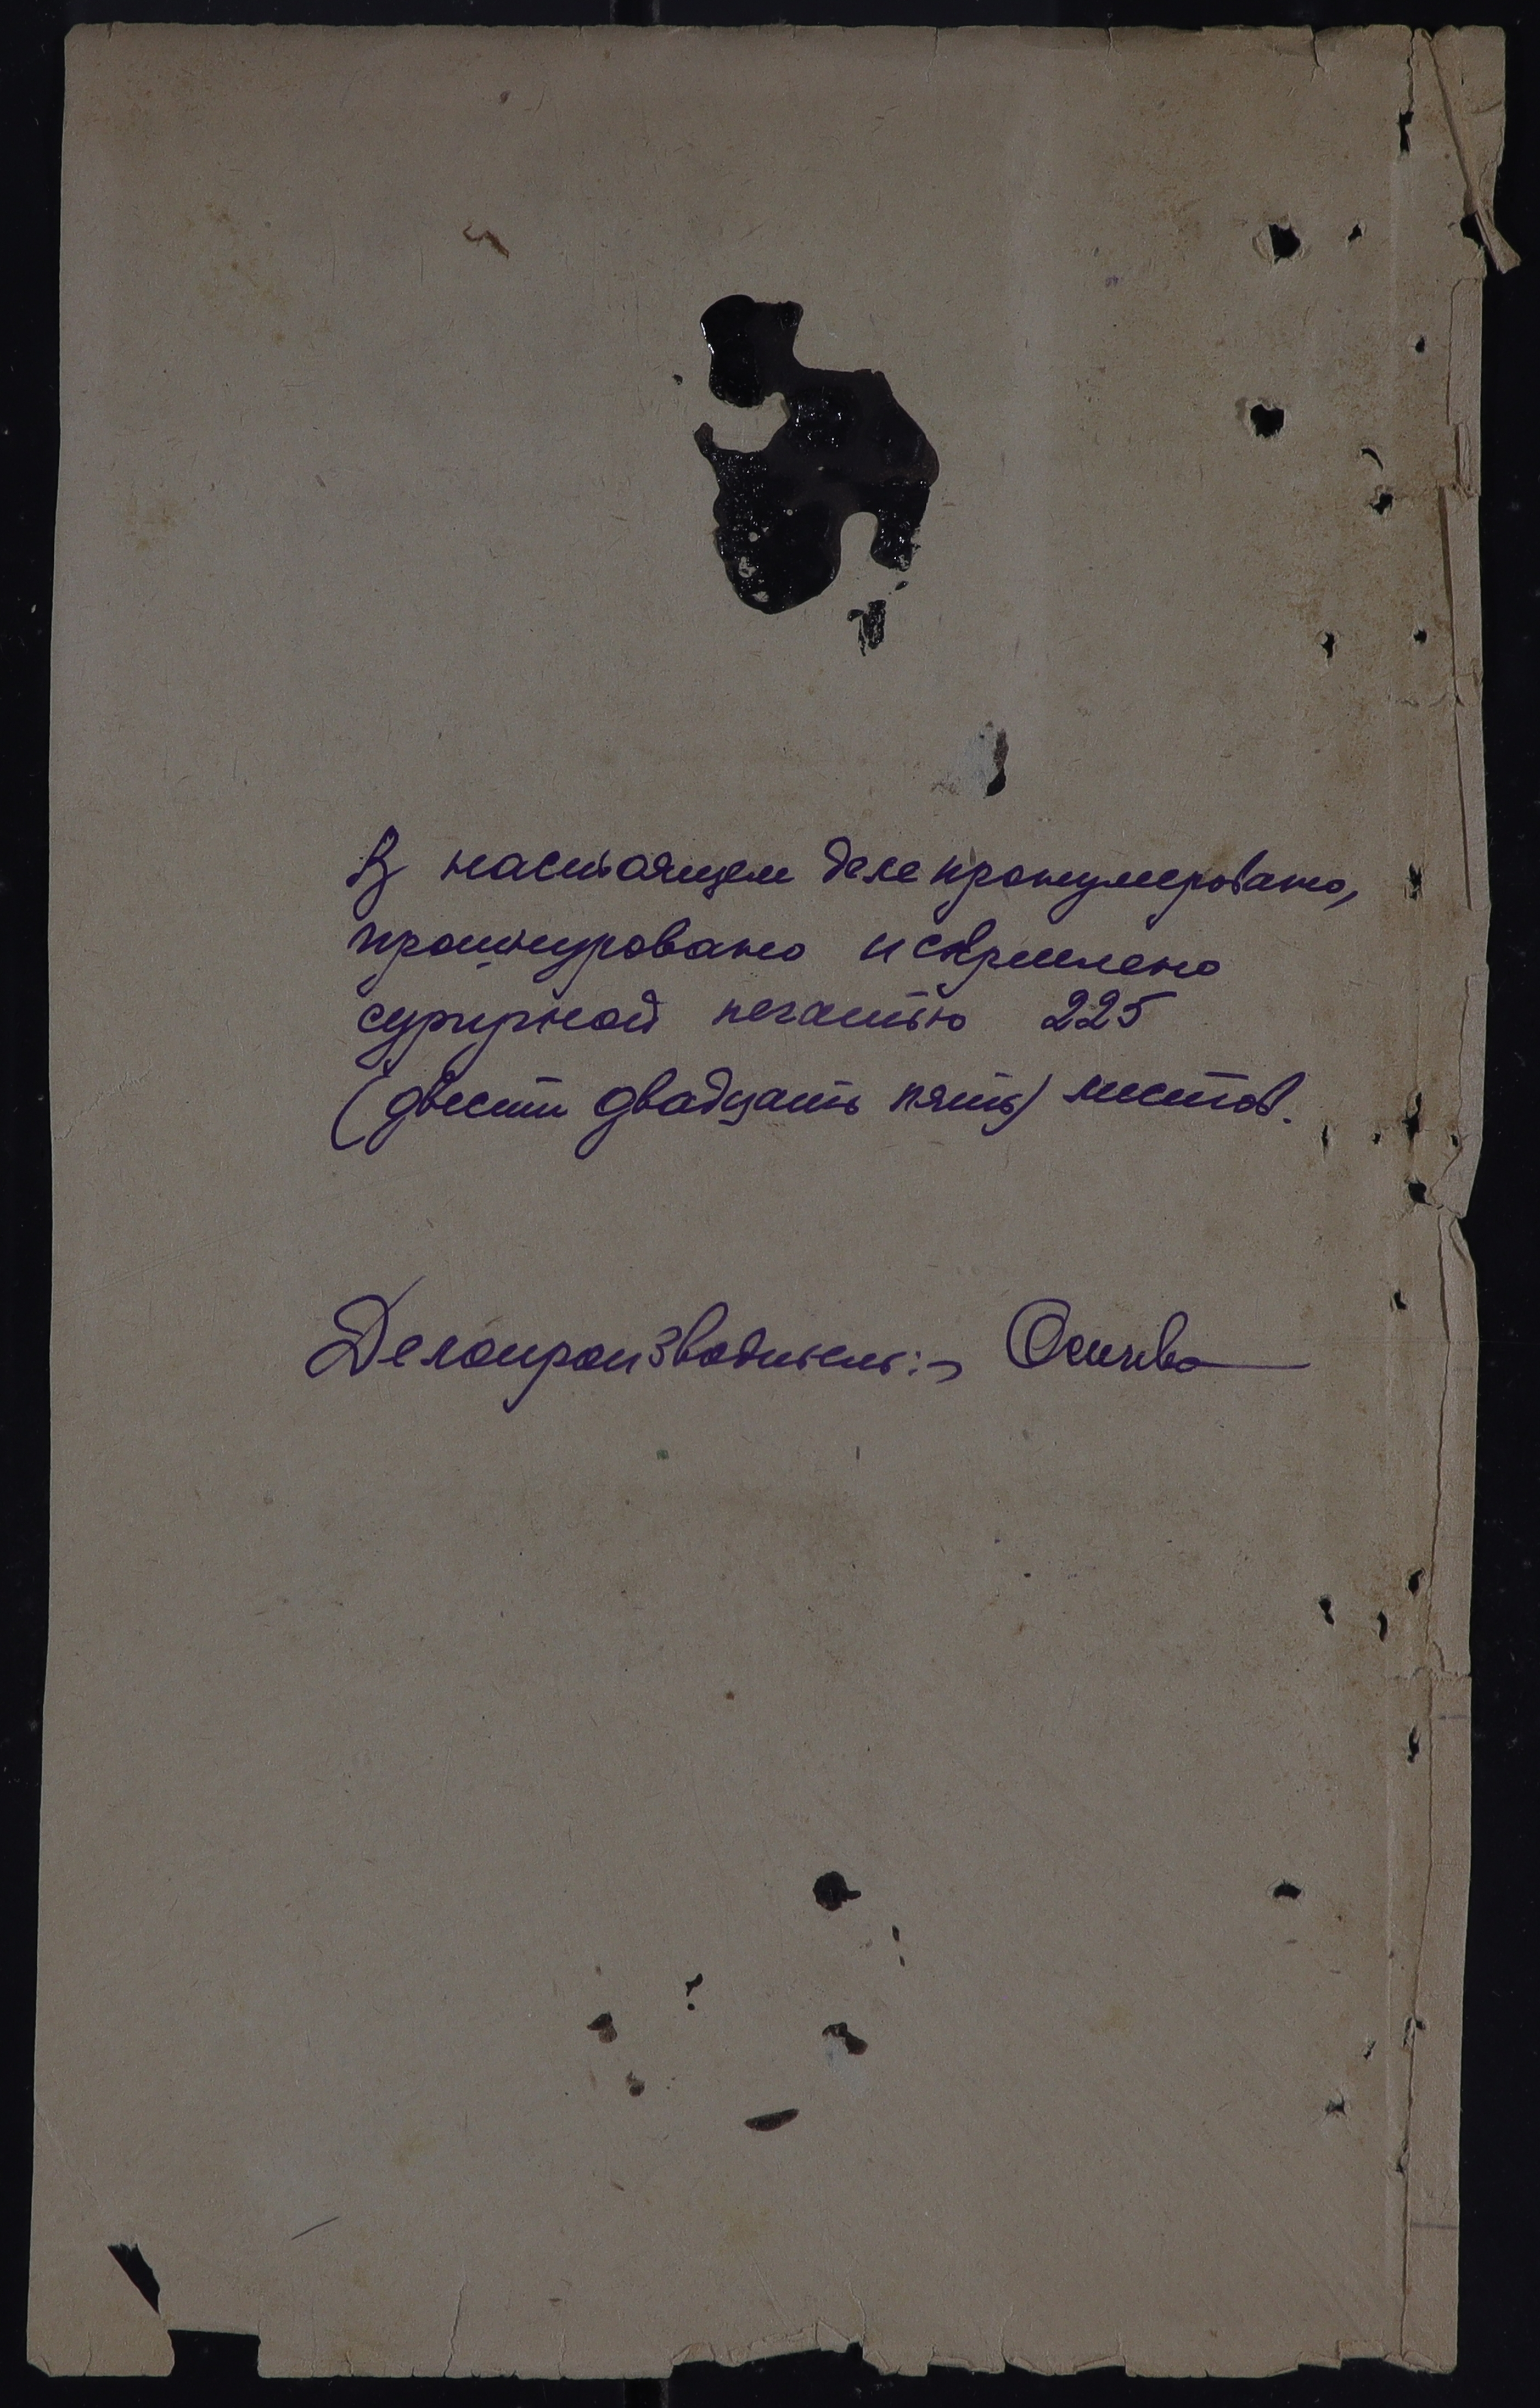 В настоящем деле пронумеровано,
прошнуровано и скреплено
сургучной печатью 225
(двести двадцать пять) листов.
Делопроизводитель:-